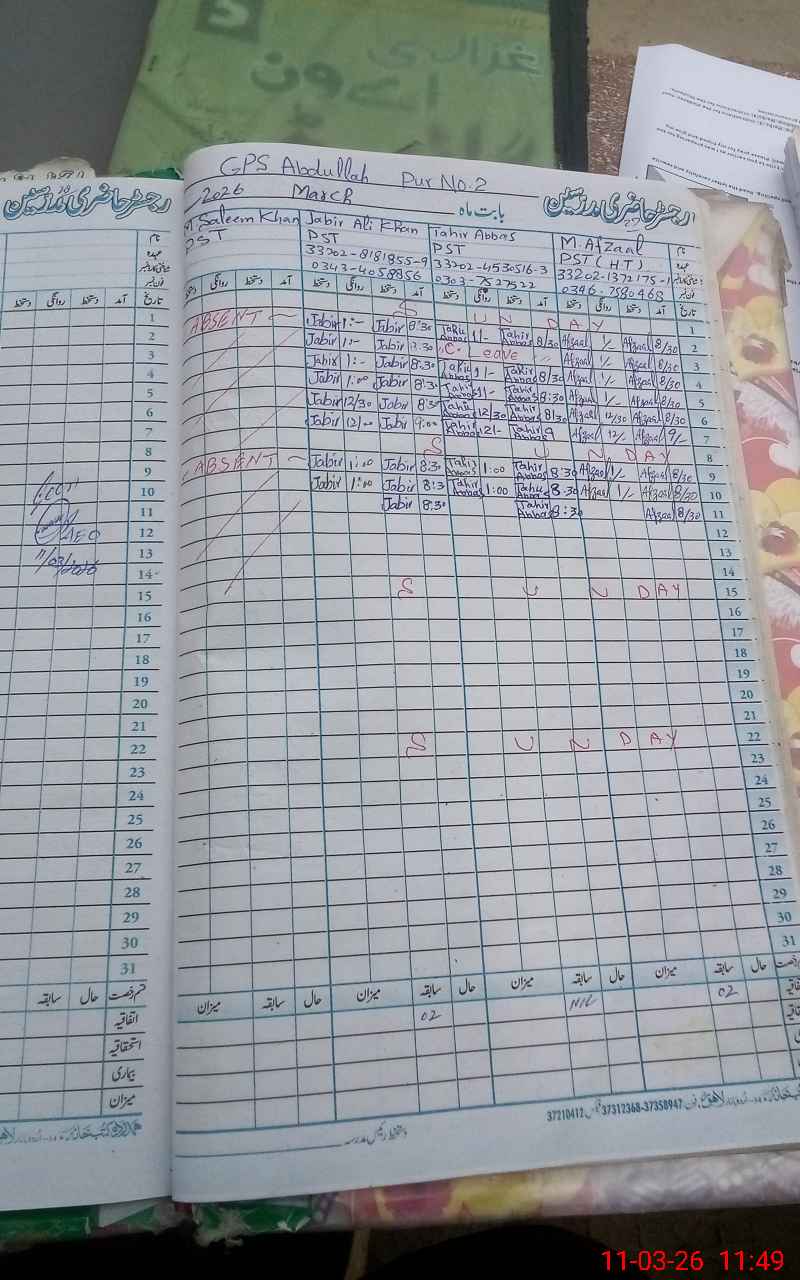 غزالی
اے ون
GPS Abdullah Pur No.2
2026 March بابت ماہ
رجسٹر حاضری مدرسین
رجسٹر حاضری مدرسین
M Saleem Khan Jabir Ali Khan Tahir Abbas M. Afzaal نام
PST PST PST PST (HT) عہدہ
33202-8181855-9 33202-4530516-3 33202-1372175-1
0343-4058856 0303-7527522 0346-7580468
دستخط روانگی دستخط آمد دستخط روانگی دستخط آمد دستخط روانگی دستخط آمد دستخط روانگی دستخط آمد تاریخ
دستخط روانگی دستخط آمد تاریخ
S U N D A Y 1
ABSENT Jabir 1:- Jabir 8:30 Tahir Abbas 1/- Tahir Abbas 8/30 Afzaal 1/- Afzaal 8/30 2
Jabir 1:- Jabir 8:30 "C. Leave" Afzaal 1/- Afzaal 8/30 3
Jabir 1:- Jabir 8:30 Tahir Abbas 1/- Tahir Abbas 8/30 Afzaal 1/- Afzaal 8/30 4
Jabir 1:00 Jabir 8:30 Tahir Abbas 1/- Tahir Abbas 8:30 Afzaal 1/- Afzaal 8/30 5
Jabir 12/30 Jabir 8:30 Tahir Abbas 12/30 Tahir Abbas 8/30 Afzaal 12/30 Afzaal 8/30 6
Jabir 12/00 Jabir 9:00 Tahir Abbas 12/- Tahir Abbas 9 Afzaal 12/- Afzaal 9/- 7
S U N D A Y 8
ABSENT Jabir 1:00 Jabir 8:30 Tahir Abbas 1:00 Tahir Abbas 8:30 Afzaal 1/- Afzaal 8/30 9
Jabir 1:00 Jabir 8:3 Tahir Abbas 1:00 Tahir Abbas 8:30 Afzaal 1/- Afzaal 8/30 10
Jabir 8:30 Tahir Abbas 8:30 Afzaal 8/30 11
12
13
14
S U N D A Y 15
16
17
18
19
20
21
S U N D A Y 22
23
24
25
26
27
28
29
30
31
1
2
3
4
5
6
7
8
9
10
11
12
13
14
15
16
17
18
19
20
21
22
23
24
25
26
27
28
29
30
31
AEO
11/03/2026
میزان سابقہ حال میزان سابقہ حال میزان سابقہ حال میزان سابقہ حال
02 NIL 02
سابقہ حال قسم رخصت
اتفاقیہ
استحقاقیہ
بیماری
میزان
دستخط رئیس مدرسہ
37210412 37312368-37358947
11-03-26 11:49